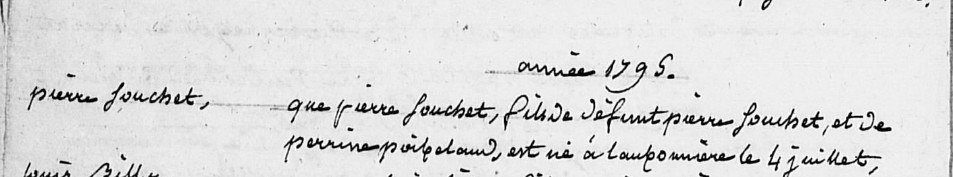 année 1795.
pierre souchet,
que pierre souchet, fils de défunt pierre souchet, et de
perrine poipelaud, est né à laubonnière le 4 juillet,
louis Billy